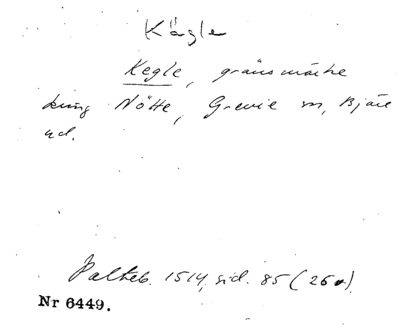 Kägle
Kegle, gränsmärke
kring Nötte, Grevie sn, Bjäre
hd.
Palteb. 1514, sid. 85 (26v).
Nr 6449.